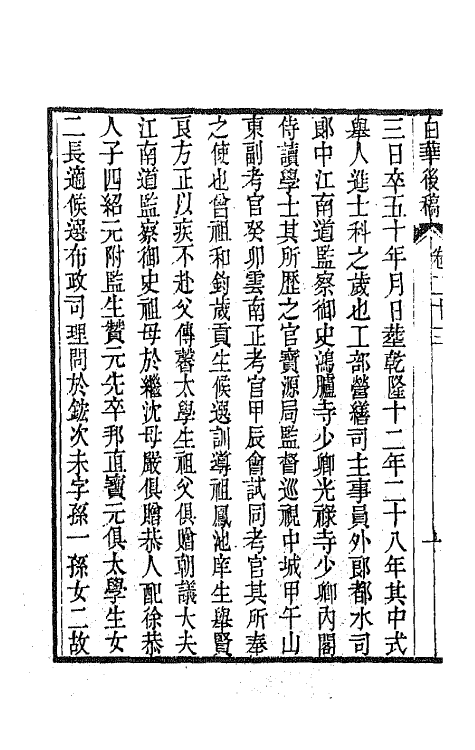 白華後稿 卷二十三
三日卒五十年月日葬乾隆十二年二十八年其中式
舉人進士科之歲也工部營繕司主事員外郎都水司
郎中江南道監察御史鴻臚寺少卿光祿寺少卿內閣
侍讀學士其所歷之官寶源局監督巡視中城甲午山
東副考官癸卯雲南正考官甲辰會試同考官其所奉
之使也曾祖和鈞歲貢生候選訓導祖鳳池庠生舉賢
良方正以疾不赴父傳馨太學生祖父俱贈朝議大夫
江南道監察御史祖母於繼沈母嚴俱贈恭人配徐恭
人子四紹元附監生贊元先卒邦直寶元俱太學生女
二長適候選布政司理問於鋐次未字孫一孫女二故